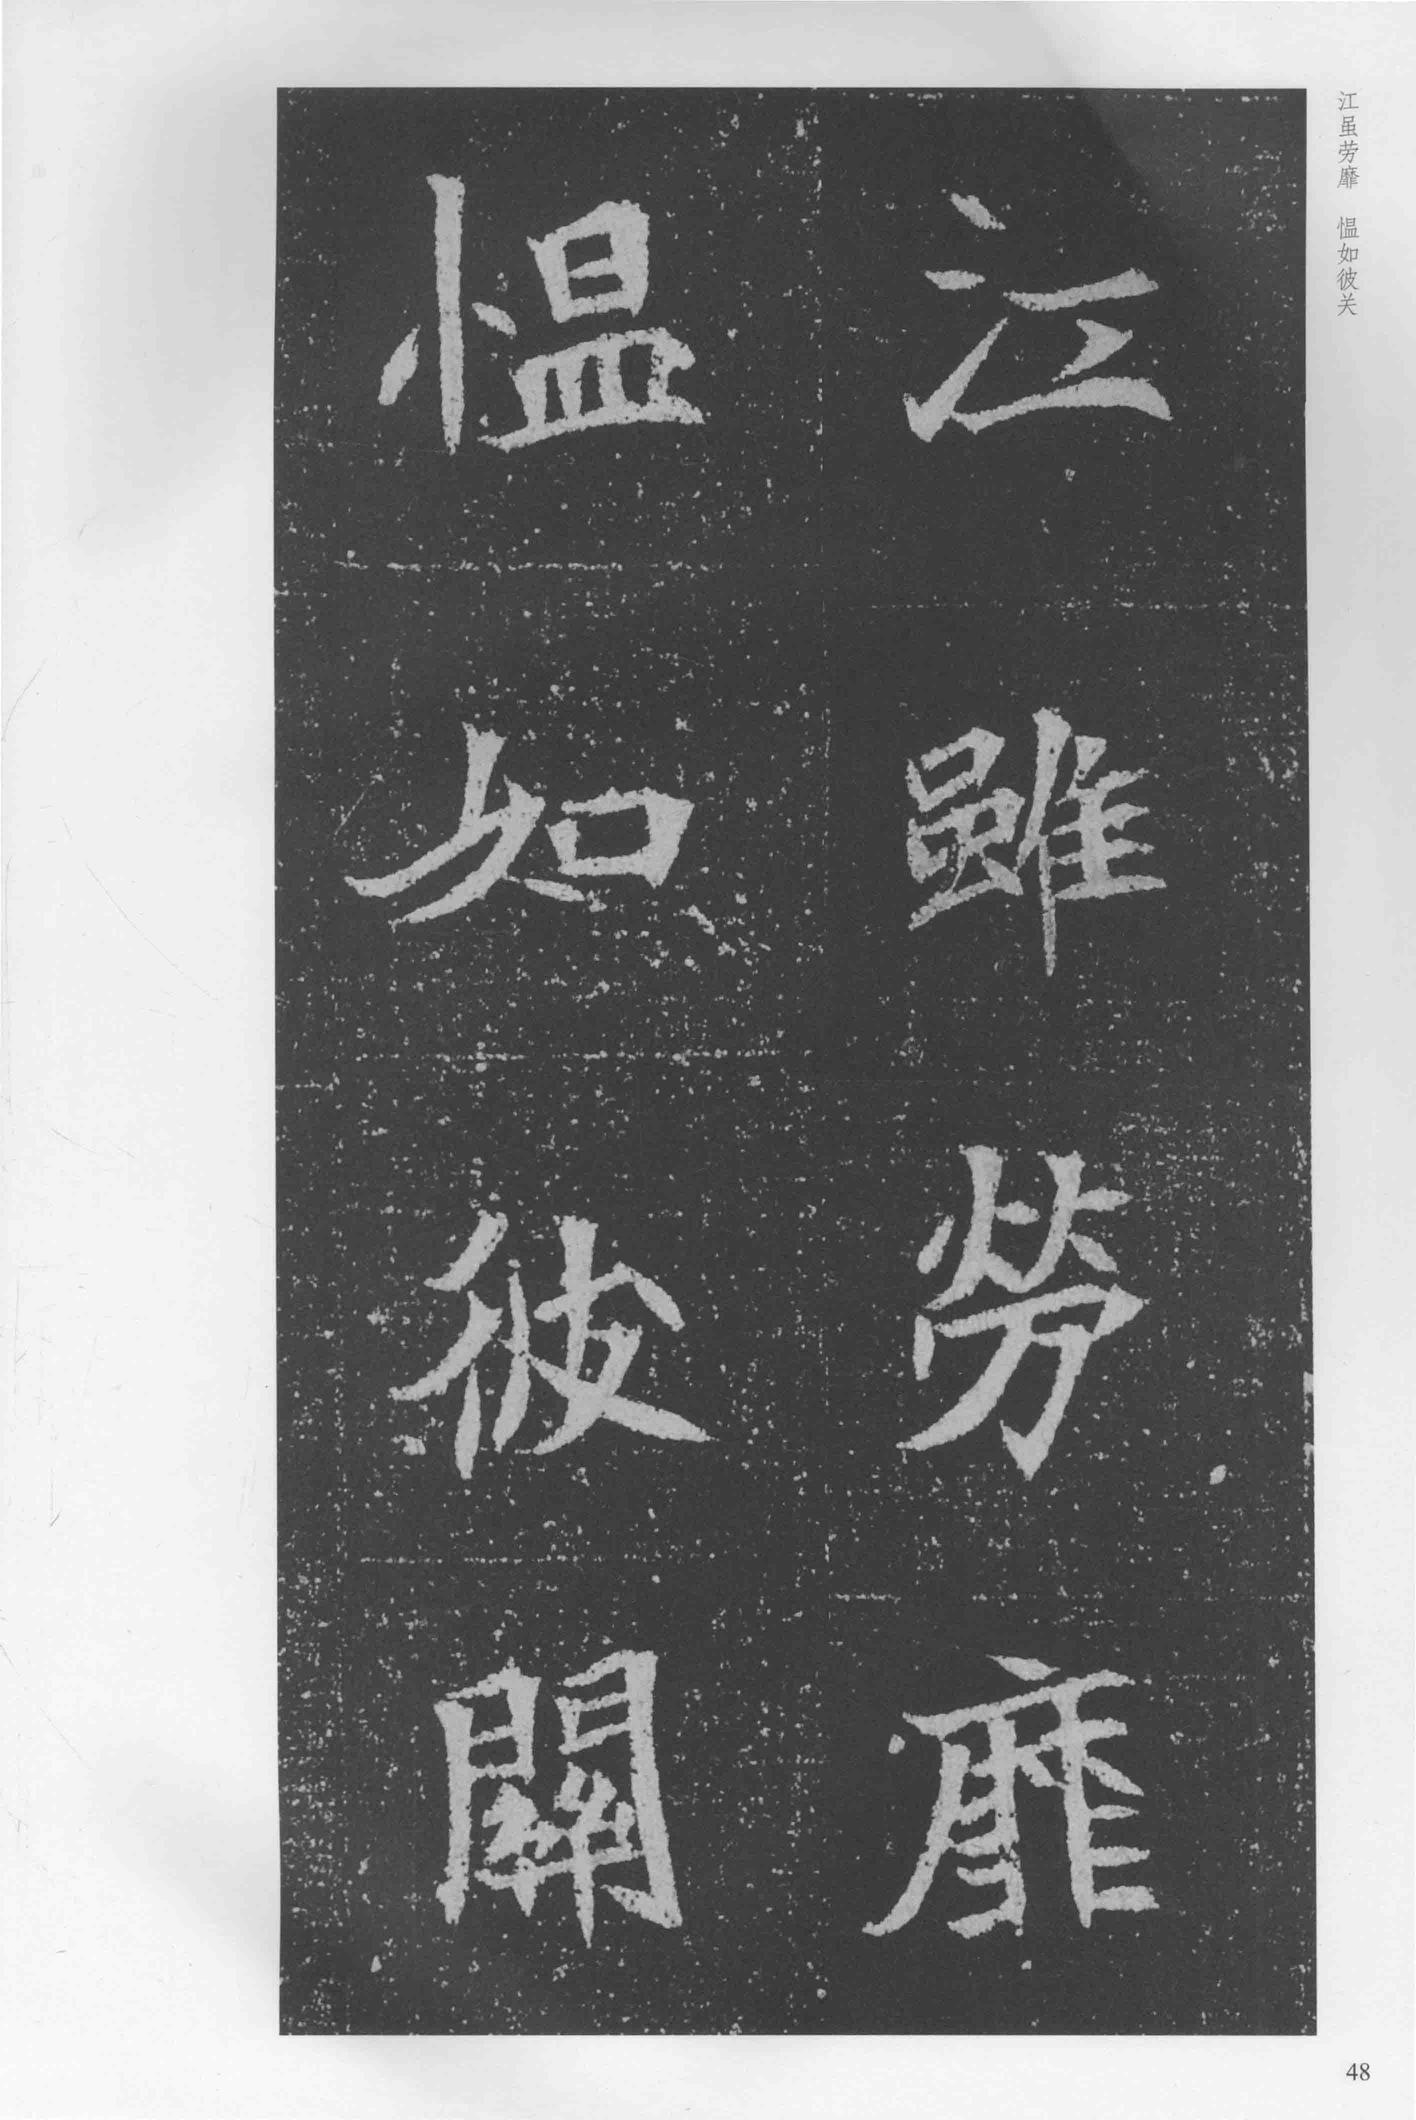 江虽劳靡 愠如彼关
江雖勞靡
愠如彼關
48